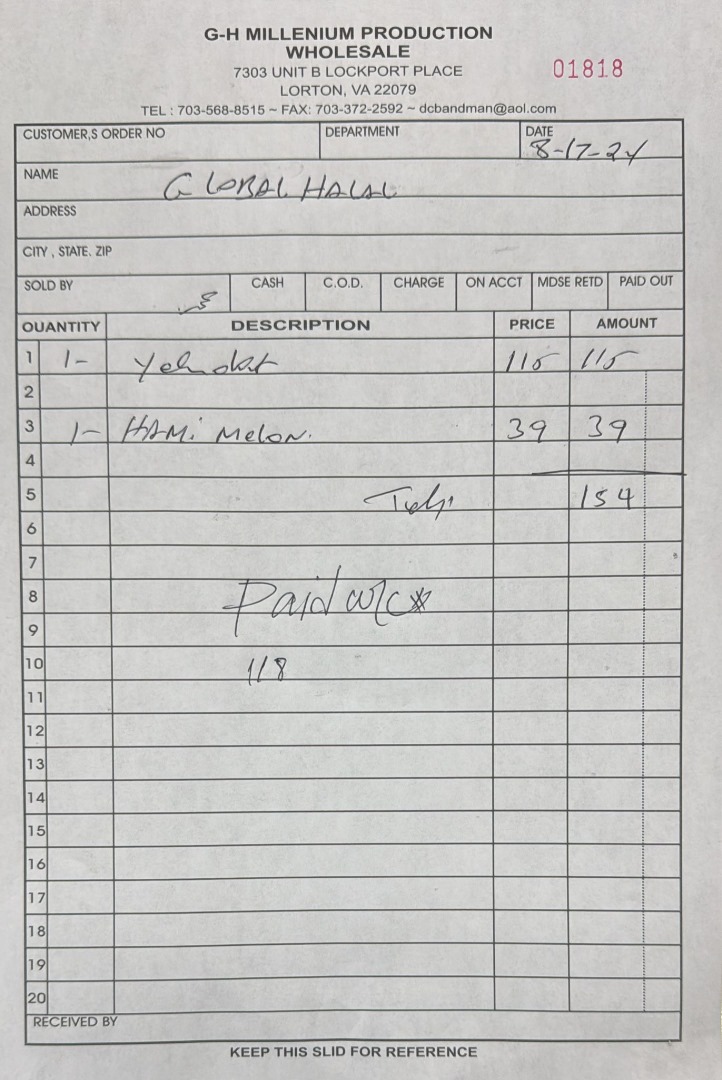 G-H MILLENIUM PRODUCTION
WHOLESALE
7303 UNIT B LOCKPORT PLACE
01818
LORTON, VA 22079
TEL : 703-568-8515 ~ FAX: 703-372-2592 ~ dcbandman@aol.com
CUSTOMER,S ORDER NO DEPARTMENT DATE
8-17-24
NAME GLOBAL HALAL
ADDRESS
CITY , STATE. ZIP
SOLD BY CASH C.O.D. CHARGE ON ACCT MDSE RETD PAID OUT
QUANTITY DESCRIPTION PRICE AMOUNT
1 1- 115 115
2
3 1- HAMi Melon. 39 39
4
5 154
6
7
8 Paid w/c
9
10 118
11
12
13
14
15
16
17
18
19
20
RECEIVED BY
KEEP THIS SLID FOR REFERENCE